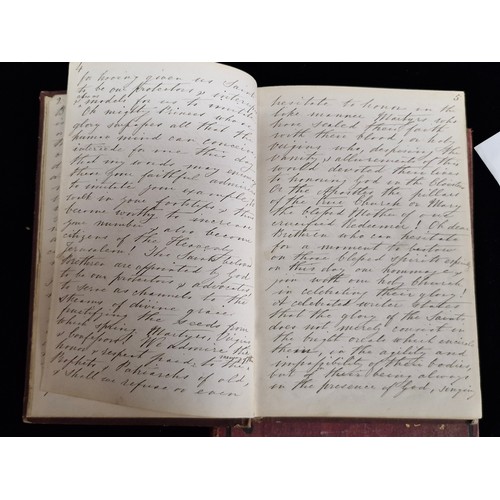 4
for having given us Saints
to be our protectors &
& models for us to imitate
Oh mighty Princes who in
glory surpass all that the
human mind can conceive
intercede for me this day
that my words may
these your faithful
to imitate your example
walk in your footsteps & thus
become worthy to increase
your number & also become
citizens of the Heavenly
Jerusalem! The Saints beloved
brethren are appointed by God
to be our protectors & advocates
to serve as channels to the
streams of divine grace
fructifying the seeds from
which spring Martyrs, Virgins
& Confessors! We admire the
honor & respect paid to the
Prophets, Patriarchs of old,
& shall we refuse or even
5
hesitate to honor in the
like manner Martyrs who
have sealed their faith
with their blood or holy
virgins who, despising the
vanity & allurements of this
world devoted their lives
to honouring God in the Cloister
Or the Apostles the pillars
of the true Church or Mary
the blessed Mother of our
crucified Redeemer! Oh dear
Brethren who can hesitate
for a moment to bestow
on those blessed spirits
on this day our homage &
join with our holy Church
in celebrating their glory!
A celebrated writer
that the glory of the Saints
does not merely consist in
the bright crowns which encircle
them, on the agility and
impassibility of their bodies,
but of their being always
in the presence of God, singing